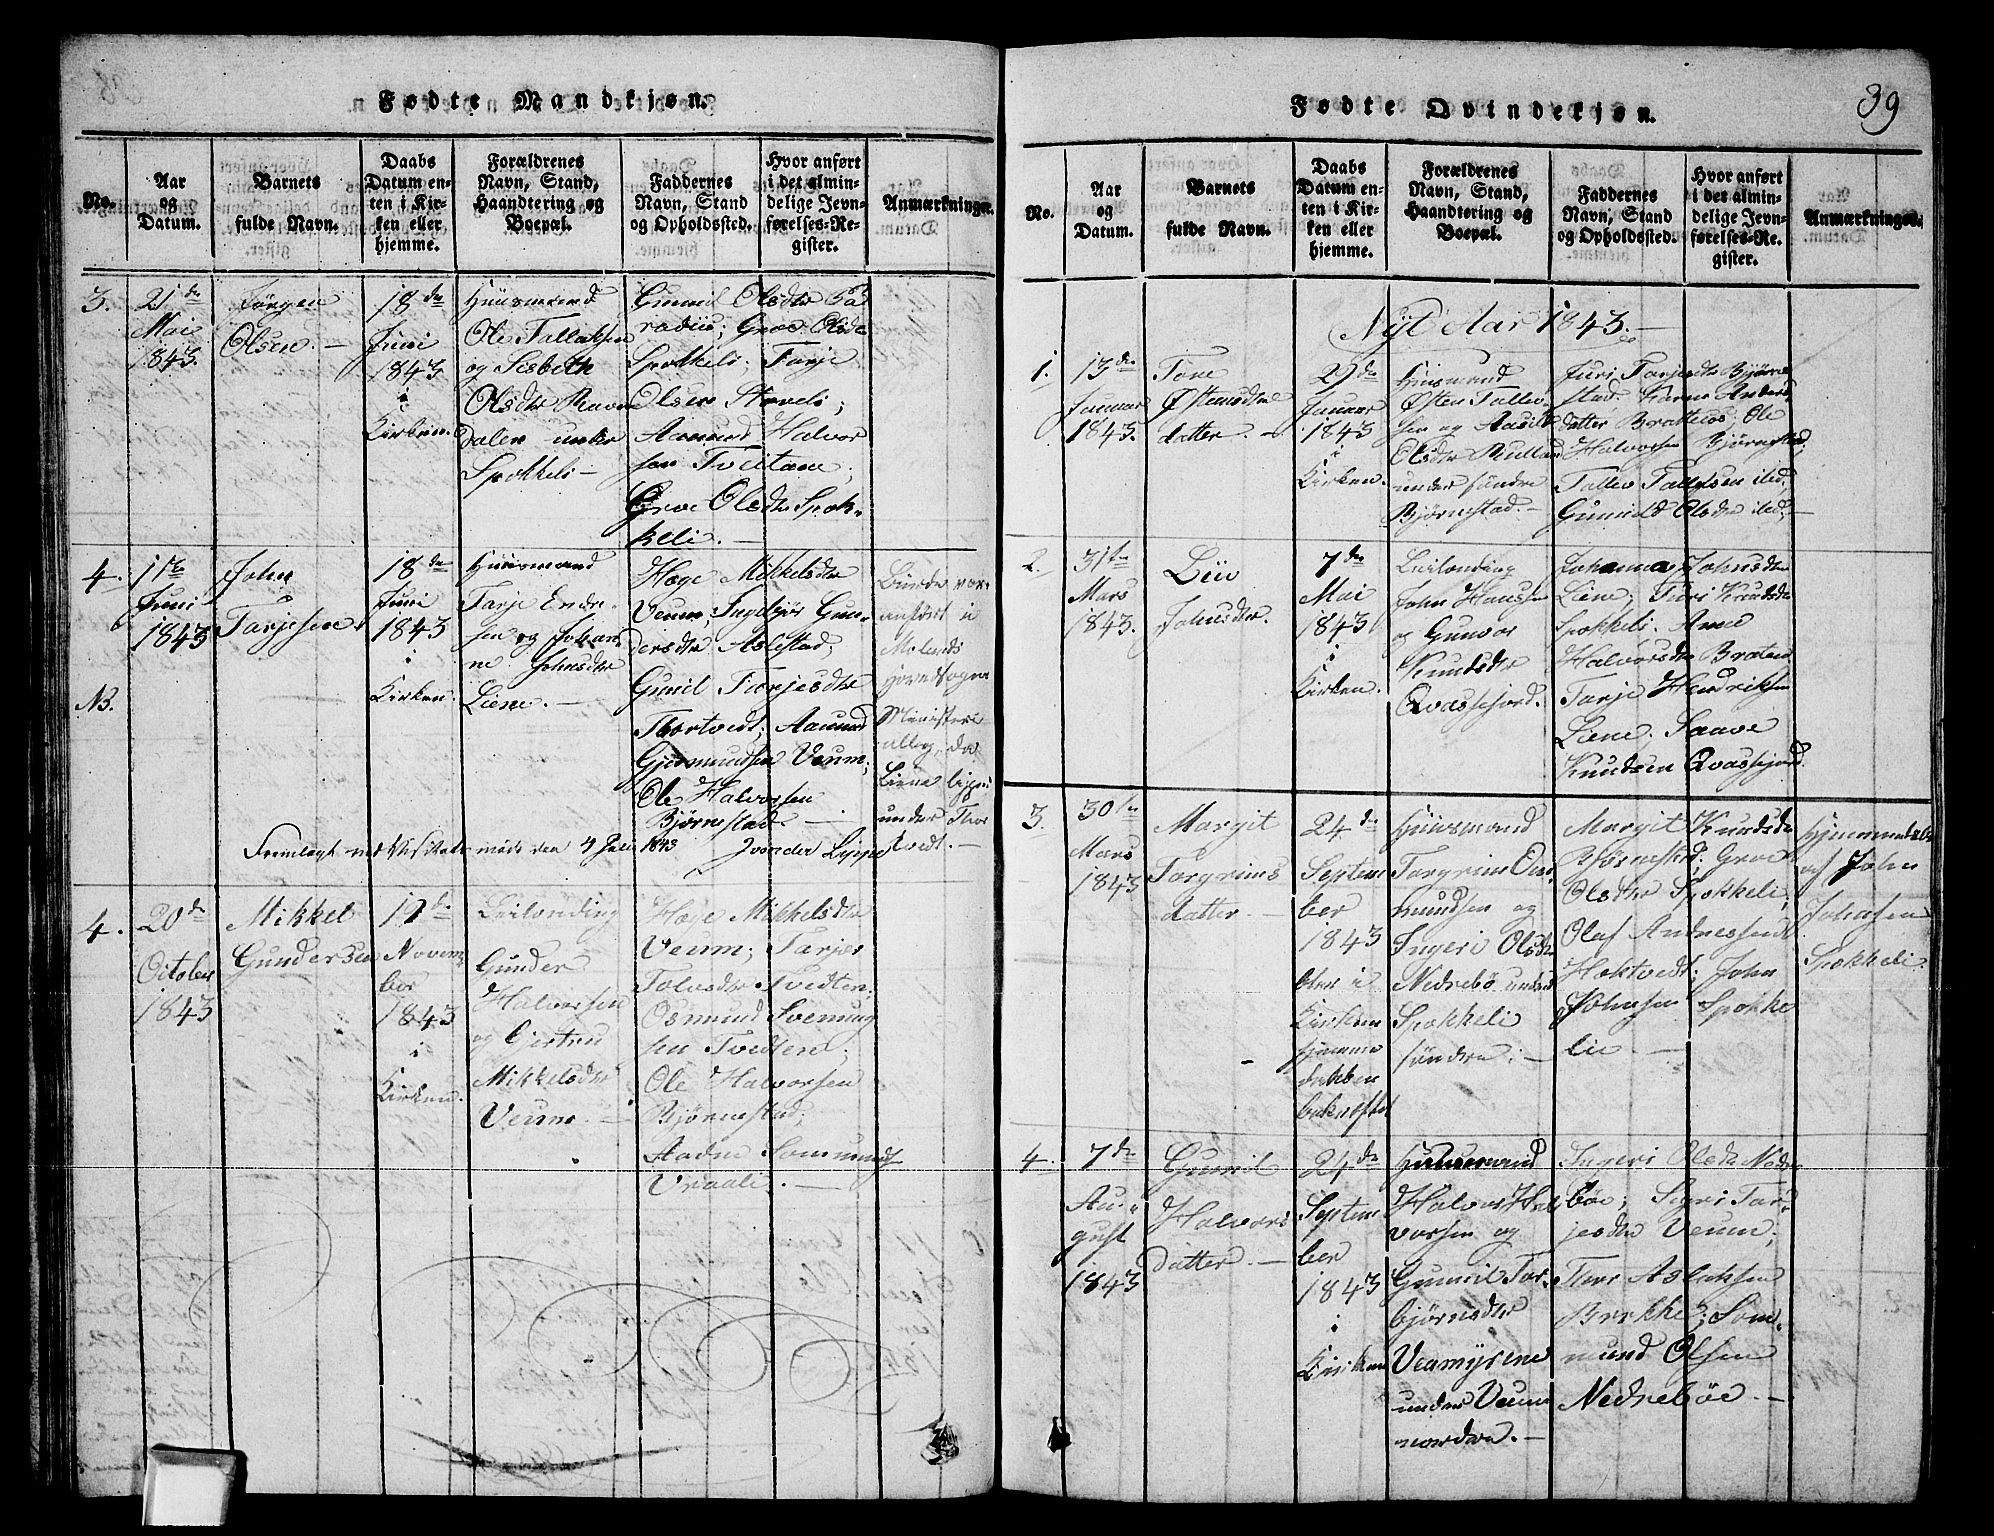 Fødte Mandkjøn.
No.
Aar
og
Datum.
Barnets
fulde Navn.
Daabs
Datum en-
ten i Kir-
ken eller
hjemme.
Forældrenes
Navn, Stand,
Haandtering og
Boepæl.
Faddernes
Navn, Stand
og Opholdssted.
Hvor anført
i det almin-
delige Jevn-
førelses-Re-
gister.
Anmærkninger.
3.
21de
Mai
1843.
Jørgen
Olsen. —
18de
Juni
1843
i
Kirken.
Huusmand
Ole Tallaksen
og Lisbeth
Olsdtr Ravne
dalen under
Spokkeli —
Gunnil Olsdtr
Groe Olsdtr
Spokkeli; Tarje
Olsen
Aanund Halvor
sen Tveitane;
Groe Olsdtr Spok-
keli. —
4.
NB.
11te
Juni
1843
John
Tarjesen
18de
Juni
1843
i
Kirken.
Huusmand
Tarje Endre-
sen og Johan-
ne Johnsdtr
Liene. —
Hæge Mikkelsdtr
Veum; Ingebjør Gun-
dersdtr Aslestad;
Gunil Tarjesdtr
Thortvedt; Aanund
Gjermundsen Veum;
Ole Halvorsen
Bjørnestad. —
Burde vær
anført i
Molands
hovedsogns
Ministeri
alb, da
Liene ligger
under Thor
tvedt. —
Fremlagt ved Visitats møde den 4 Juli 1843
4.
20de
October
1843
Mikkel
Gundersen
12de
Novem-
ber
1843
i
Kirken.
Leilending
Gunder
Halvorsen
og Gjertru
Mikkelsdtr
Veum. —
Hæge Mikkelsdtr
Veum; Tarjer
Folvsdtr Tvedten;
Osmund Svenung
sen Tvedten;
Ole Halvorsen
Bjørnestad;
Aadne Sommundsen
Vraali. —
39
Fødte Qvindekjøn.
No.
Aar
og
Datum.
Barnets
fulde Navn.
Daabs
Datum en-
ten i Kir-
ken eller
hjemme.
Forældrenes
Navn, Stand,
Haandtering og
Boepæl.
Faddernes
Navn, Stand
og Opholdssted.
Hvor anført
i det almin-
delige Jevn-
førelses-Re-
gister.
Anmærkninger.
Nyt Aar 1843. —
1.
13de
Januar
1843.
Tone
Østensdtr
datter. —
29de
Januar
1843
i
Kirken.
Huusmand
Østen Tallev
sen og Aasild
Olsdtr
under søndre
Bjørnestad. —
Juri Tarjesdtr Bjørne
stad. Karen Anders
datter Bratteus; Ole
Halvorsen Bjørnestad;
Tallev Tallevsen ibid.
Gunnild Olsdtr ibid. —
2.
31te
Mars
1843.
Liv
Johnsdtr.
7de
Mai
1843
i
Kirken.
Leilending
John Hansen
og Gunvor
Knudsdtr
Qvassefjord.
Johanna Johnsdtr
Liene; Turi Knudsdtr
Spokkeli. Anne
Halvorsdtr Braten
Tarje Hendriksen
Liene, Saave
Knudsen Qvassefjord.
3.
30te
Mars
1843
Margit
Torgrims
datter. —
24de
Septem
ber
1843
i
Kirken
hjemme
daaben
bekræftet
Huusmand
Torgrim Os-
mundsen og
Ingeri Olsdtr
Nedrebö under
Spokkeli
søndre. —
Margit Knudsdtr
Bjørnestad; Groe
Olsdtr Spokkeli,
Olaf Andressen
Hoktvedt; John
Johnsen Spokke
lie. —
Hjemmedøbt
af John
Johnsen
Spokkeli.
4.
7de
Au-
gust
1843
Gunil
Halvors
datter. —
24de
Septem
ber
1843
i
Kirken
Huusmand
Halvor Hal
vorsen og
Gunnil Tor-
bjørnsdtr
Veamyrene
under Veum
nordre. —
Ingeri Olsdtr Nedre
böe; Sigri Tar-
jesdtr Veum;
Thor Aslaksen
Brekke; Som-
mund Olsen
Nedreböe. —